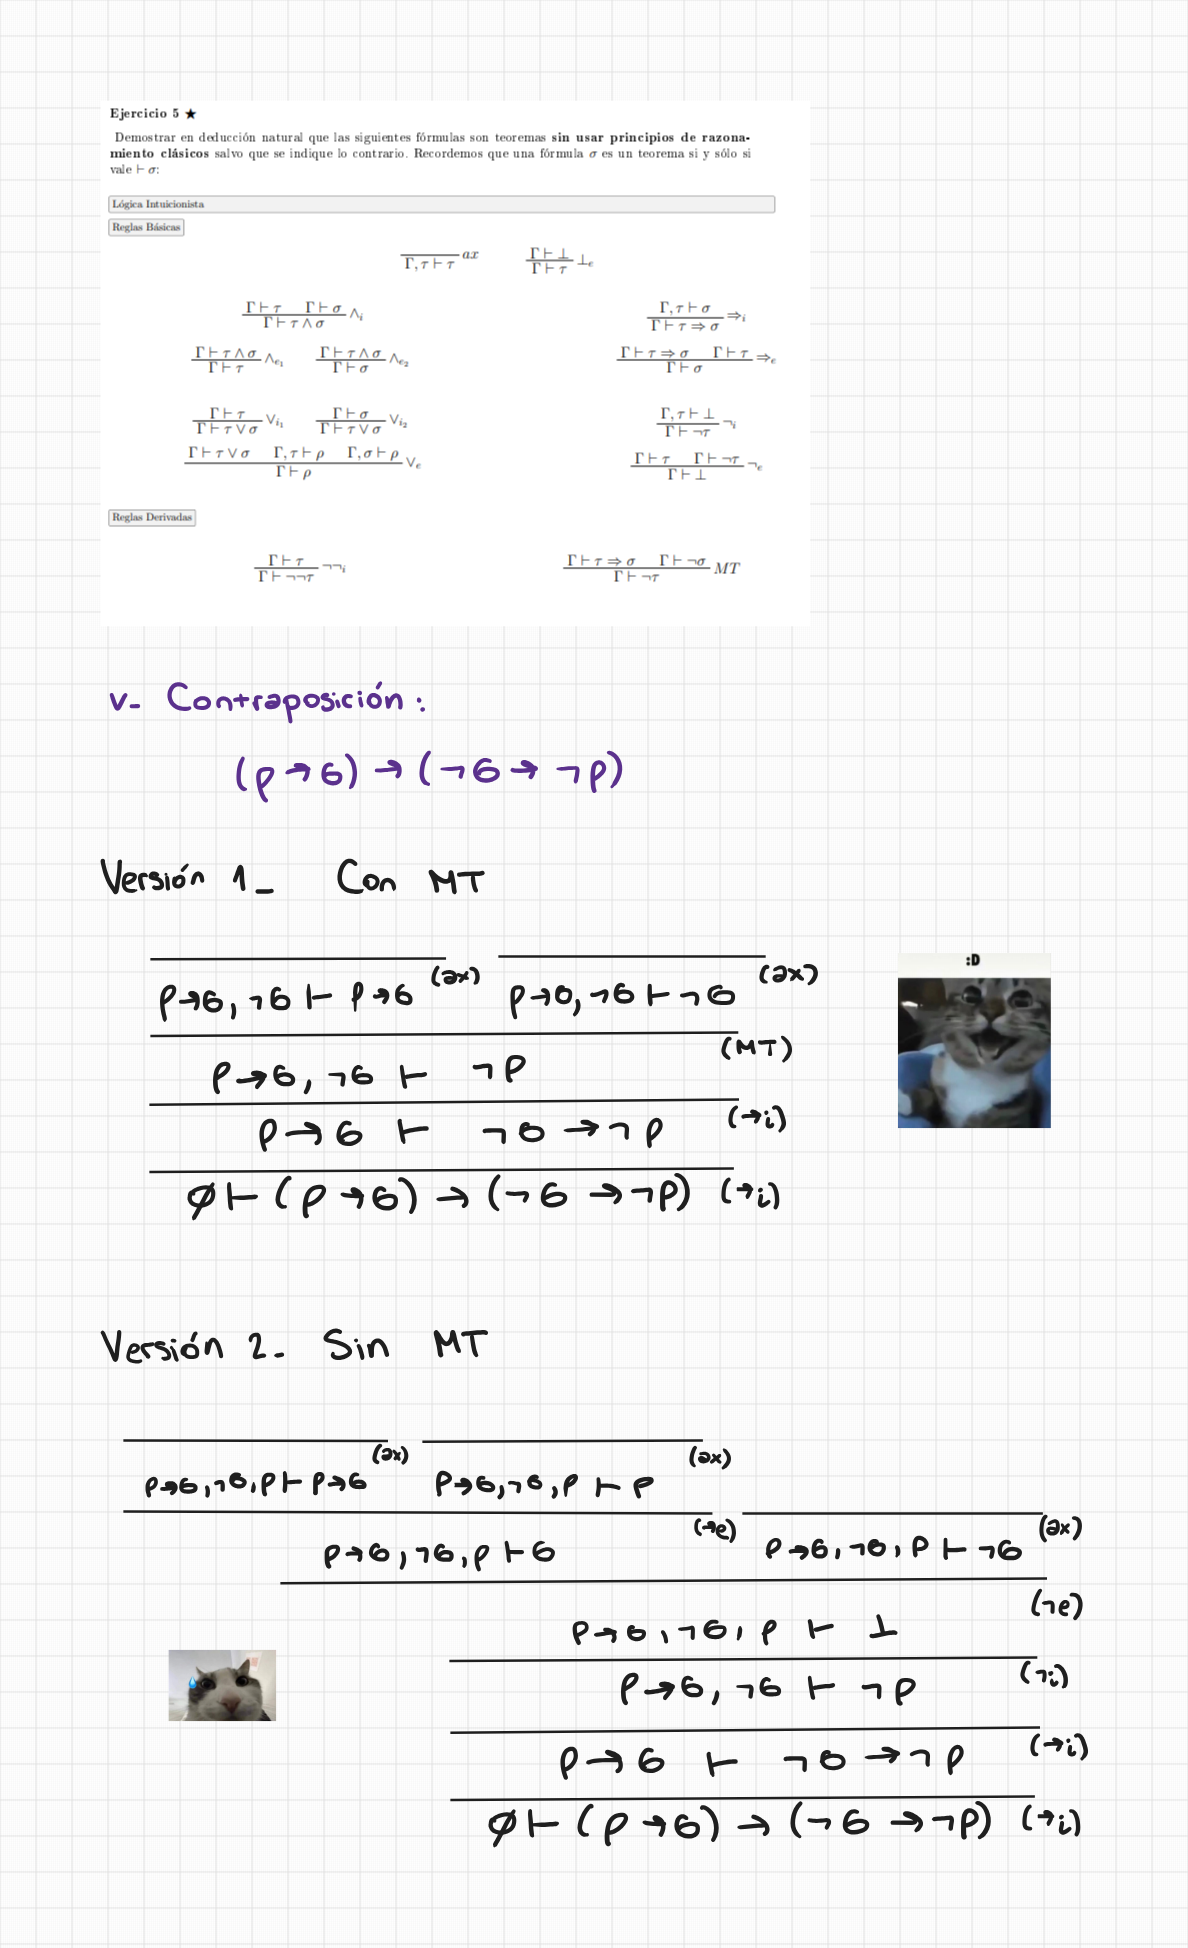 Ejercicio 5 ★
Demostrar en deducción natural que las siguientes fórmulas son teoremas sin usar principios de razona-
miento clásicos salvo que se indique lo contrario. Recordemos que una fórmula σ es un teorema si y sólo si
vale ⊢ σ:
Lógica Intuicionista
Reglas Básicas
Γ, τ ⊢ τ ax
Γ ⊢ ⊥
Γ ⊢ τ ⊥e
Γ ⊢ τ Γ ⊢ σ
Γ ⊢ τ ∧ σ ∧i
Γ, τ ⊢ σ
Γ ⊢ τ ⇒ σ ⇒i
Γ ⊢ τ ∧ σ
Γ ⊢ τ ∧e1
Γ ⊢ τ ∧ σ
Γ ⊢ σ ∧e2
Γ ⊢ τ ⇒ σ Γ ⊢ τ
Γ ⊢ σ ⇒e
Γ ⊢ τ
Γ ⊢ τ ∨ σ ∨i1
Γ ⊢ σ
Γ ⊢ τ ∨ σ ∨i2
Γ, τ ⊢ ⊥
Γ ⊢ ¬τ ¬i
Γ ⊢ τ ∨ σ Γ, τ ⊢ ρ Γ, σ ⊢ ρ
Γ ⊢ ρ ∨e
Γ ⊢ τ Γ ⊢ ¬τ
Γ ⊢ ⊥ ¬e
Reglas Derivadas
Γ ⊢ τ
Γ ⊢ ¬¬τ ¬¬i
Γ ⊢ τ ⇒ σ Γ ⊢ ¬σ
Γ ⊢ ¬τ MT
v- Contraposición:
(ρ → σ) → (¬σ → ¬ρ)
Versión 1_ Con MT
:D
ρ→σ, ¬σ ⊢ ρ→σ (ax) ρ→σ, ¬σ ⊢ ¬σ (ax)
ρ→σ, ¬σ ⊢ ¬ρ (MT)
ρ→σ ⊢ ¬σ → ¬ρ (→i)
∅ ⊢ (ρ → σ) → (¬σ → ¬ρ) (→i)
Versión 2- Sin MT
ρ→σ, ¬σ, ρ ⊢ ρ→σ (ax) ρ→σ, ¬σ, ρ ⊢ ρ (ax)
ρ→σ, ¬σ, ρ ⊢ σ (→e) ρ→σ, ¬σ, ρ ⊢ ¬σ (ax)
ρ→σ, ¬σ, ρ ⊢ ⊥ (¬e)
ρ→σ, ¬σ ⊢ ¬ρ (¬i)
ρ→σ ⊢ ¬σ → ¬ρ (→i)
∅ ⊢ (ρ → σ) → (¬σ → ¬ρ) (→i)